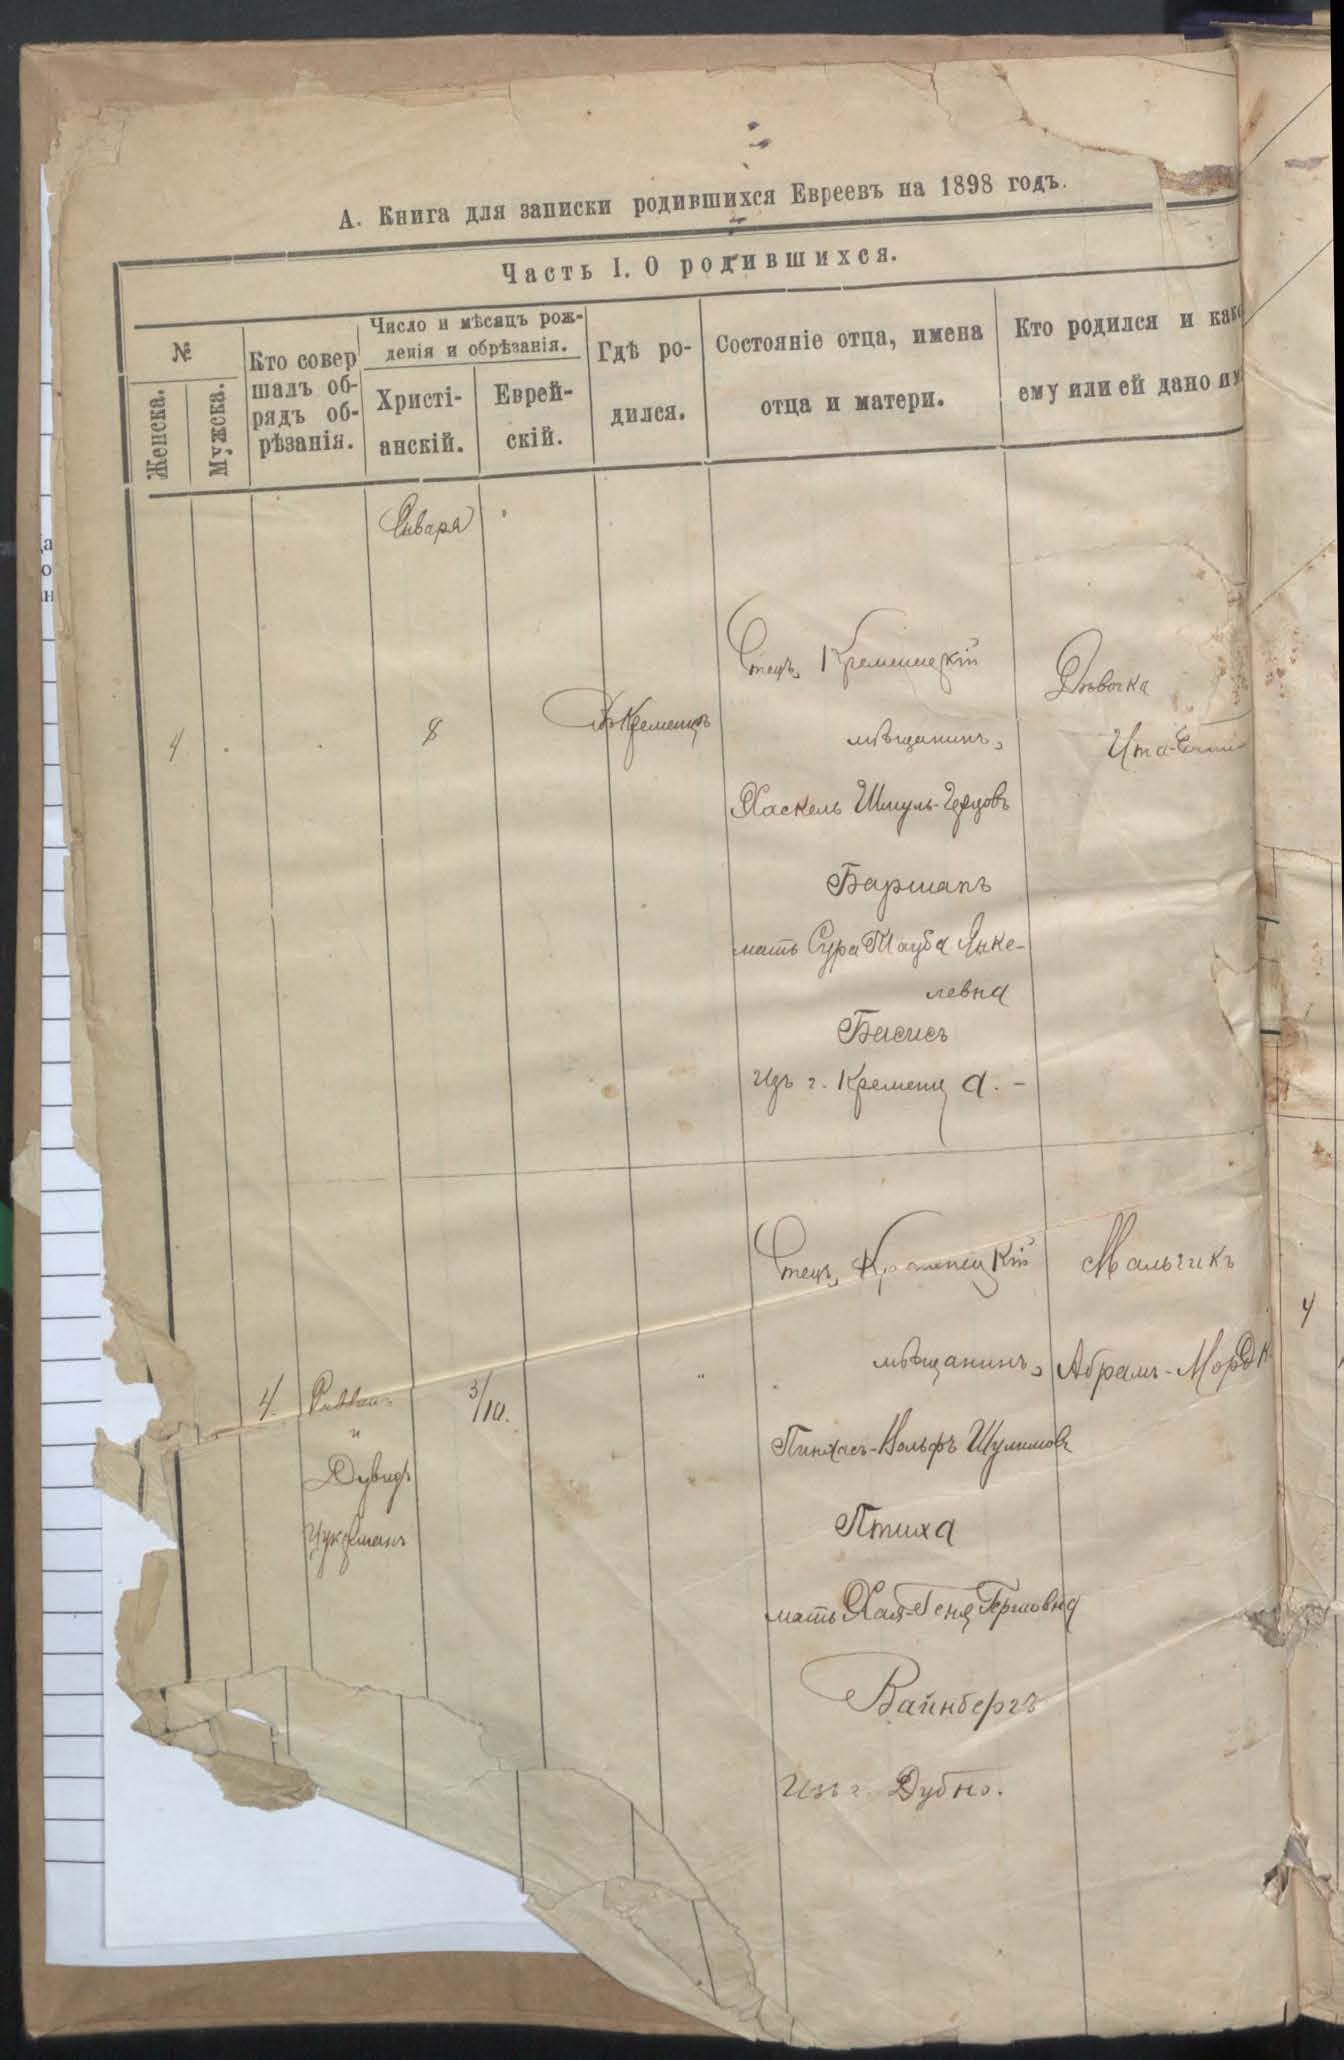 А. Книга для записки родившихся Евреевъ на 1898 годъ.
Часть I. О родившихся.
№
Женска.
Мужска.
Кто совер
шалъ об-
рядъ об-
рѣзанія.
Число и мѣсяцъ рож-
денія и обрѣзанія.
Христі-
анскій.
Еврей-
скій.
Гдѣ ро-
дился.
Состояніе отца, имена
отца и матери.
Кто родился и како
ему или ей дано им
Января
4
8
Въ Кременцѣ
Отецъ, Кременецкій
мѣщанинъ,
Хаскель Шмуль-Герцовъ
Баршапъ
мать Сура Тауба Янке-
левна
Басисъ
изъ г. Кременца. -
Дѣвочка
Ита-
4.
Раввинъ
и
Дувидъ
Цукерманъ
3/10.
"
Отецъ, Кременецкій
мѣщанинъ,
Пинхасъ-Вольфъ Шулимовъ
Птиха
мать Хая-Геня Гершовна
Вайнбергъ
изъ г. Дубно.
Мальчикъ
Абрамъ-Мордк
4